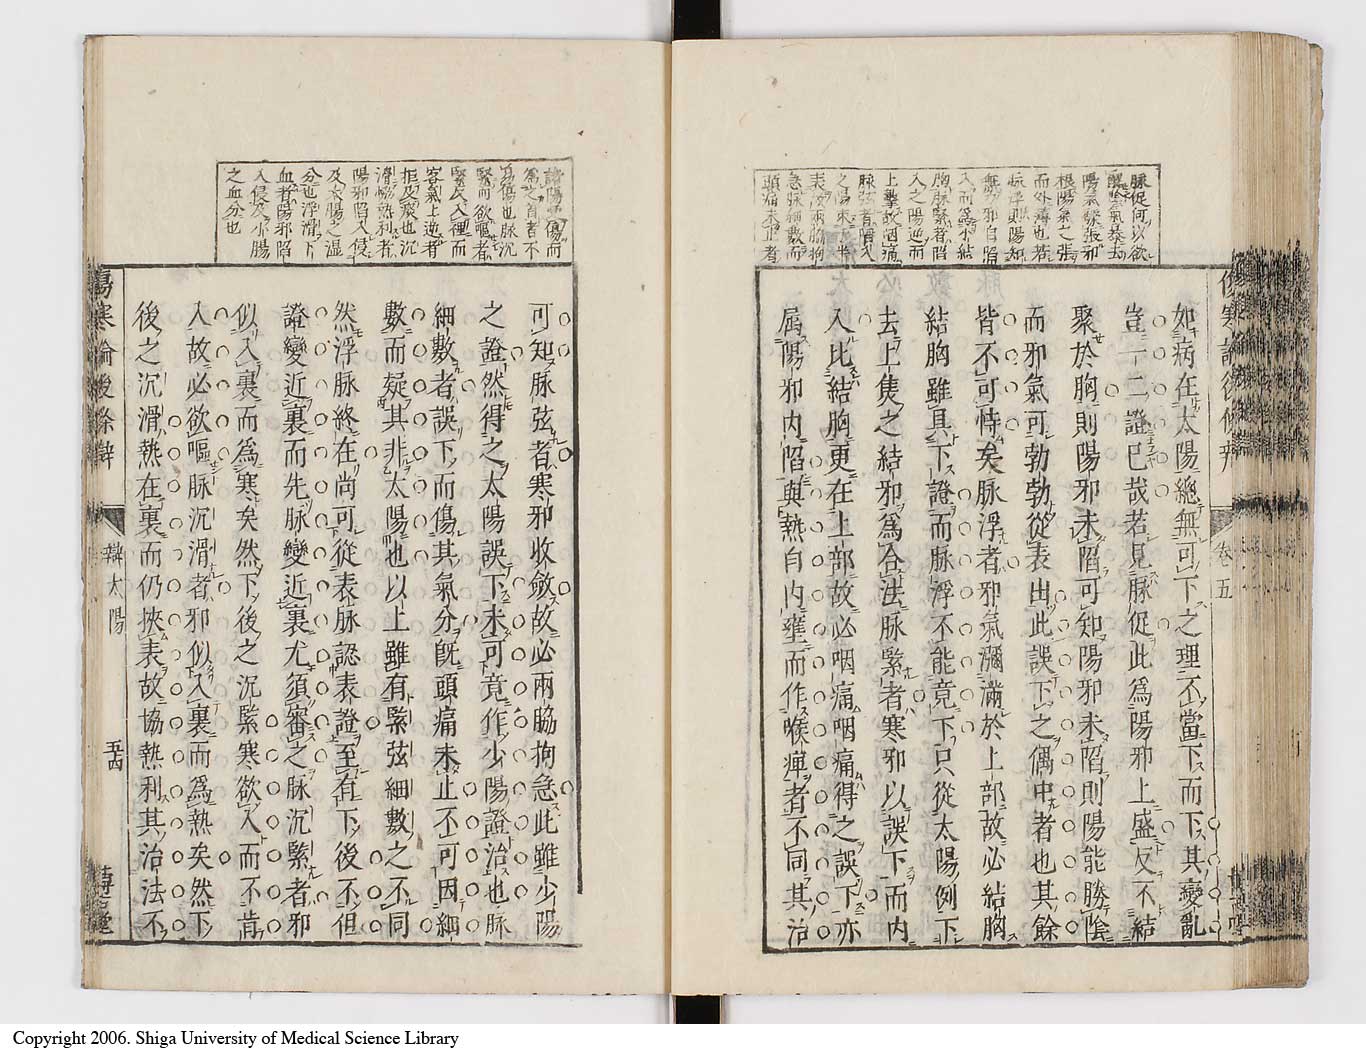 脉促何以欲
陽氣暴張邪
根陽氣之張
而外薄也若
無邪自陷
入而為小結
胸脉緊者陷
入之陽逆而
上擊故咽痛
之陽來半
表故兩脇拘
急脉細數而
頭痛未止者
傷寒論後條辨
卷五
如病在太陽總無可下之理不當下而下其變亂
豈一二證已哉若見脉促此為陽邪上盛反不結
聚於胸則陽邪未陷可知陽邪未陷則陽能勝陰
而邪氣可勃勃從表出此誤下之偶中者也其餘
皆不可恃矣脉浮者邪氣瀰滿於上部故必結胸
結胸雖具下證而脉浮不能竟下只從太陽例下
去上焦之結邪為合法脉緊者寒邪以誤下而內
入比結胸更在上部故必咽痛咽痛得之誤下亦
屬陽邪內陷與熱自內壅而作喉痺者不同其治
諸陽傷而
為之首者不
為傷也脉沉
緊而欲嘔者
緊入裡而
客氣上逆者
拒及痰也沉
滑協熱利者
陽邪陷入侵
及大腸之温
分也浮滑下
血者陽邪陷
入侵及小腸
之血分也
可知脉弦者寒邪收斂故必兩脇拘急此雖少陽
之證然得之太陽誤下未可竟作少陽證治也脉
細數者誤下而傷其氣分既頭痛未止不可因細
數而疑其非太陽也以上雖有緊弦細數之不同
然浮脉終在尚可從表脉認表證至有下後不但
證變近裏而先脉變近裏尤須審之脉沉緊者邪
似入裏而為寒矣然下後之沉緊寒欲入而不肯
入故必欲嘔脉沉滑者邪似入裏而為熱矣然下
後之沉滑熱在裏而仍挾表故協熱利其治法不
傷寒論後條辨
辨太陽
五十四
Copyright 2006. Shiga University of Medical Science Library